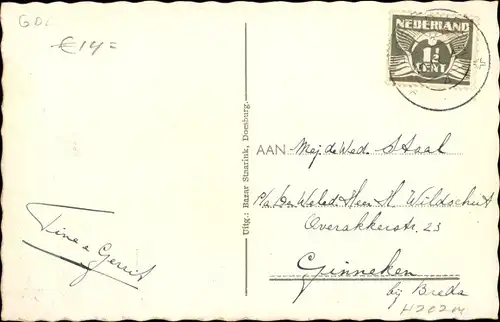 GD
€14=
NEDERLAND
1½
CENT
AAN Mej. de Wed. Staal
p/a den Weled. Heer H. Wildschut
Overakkerstr. 23
Ginneken
bij Breda
H202m
Uitg.: Bazar Staarink, Doesburg.
Tine & Gerrit